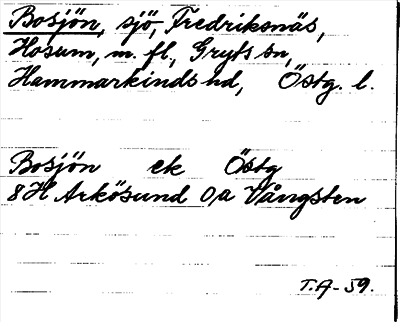 Bosjön, sjö, Fredriksnäs,
Hosum, m. fl., Gryts sn,
Hammarkinds hd, Östg. l.
Bosjön ek Östg
8H Arkösund 0a Vångsten
T.A-59.